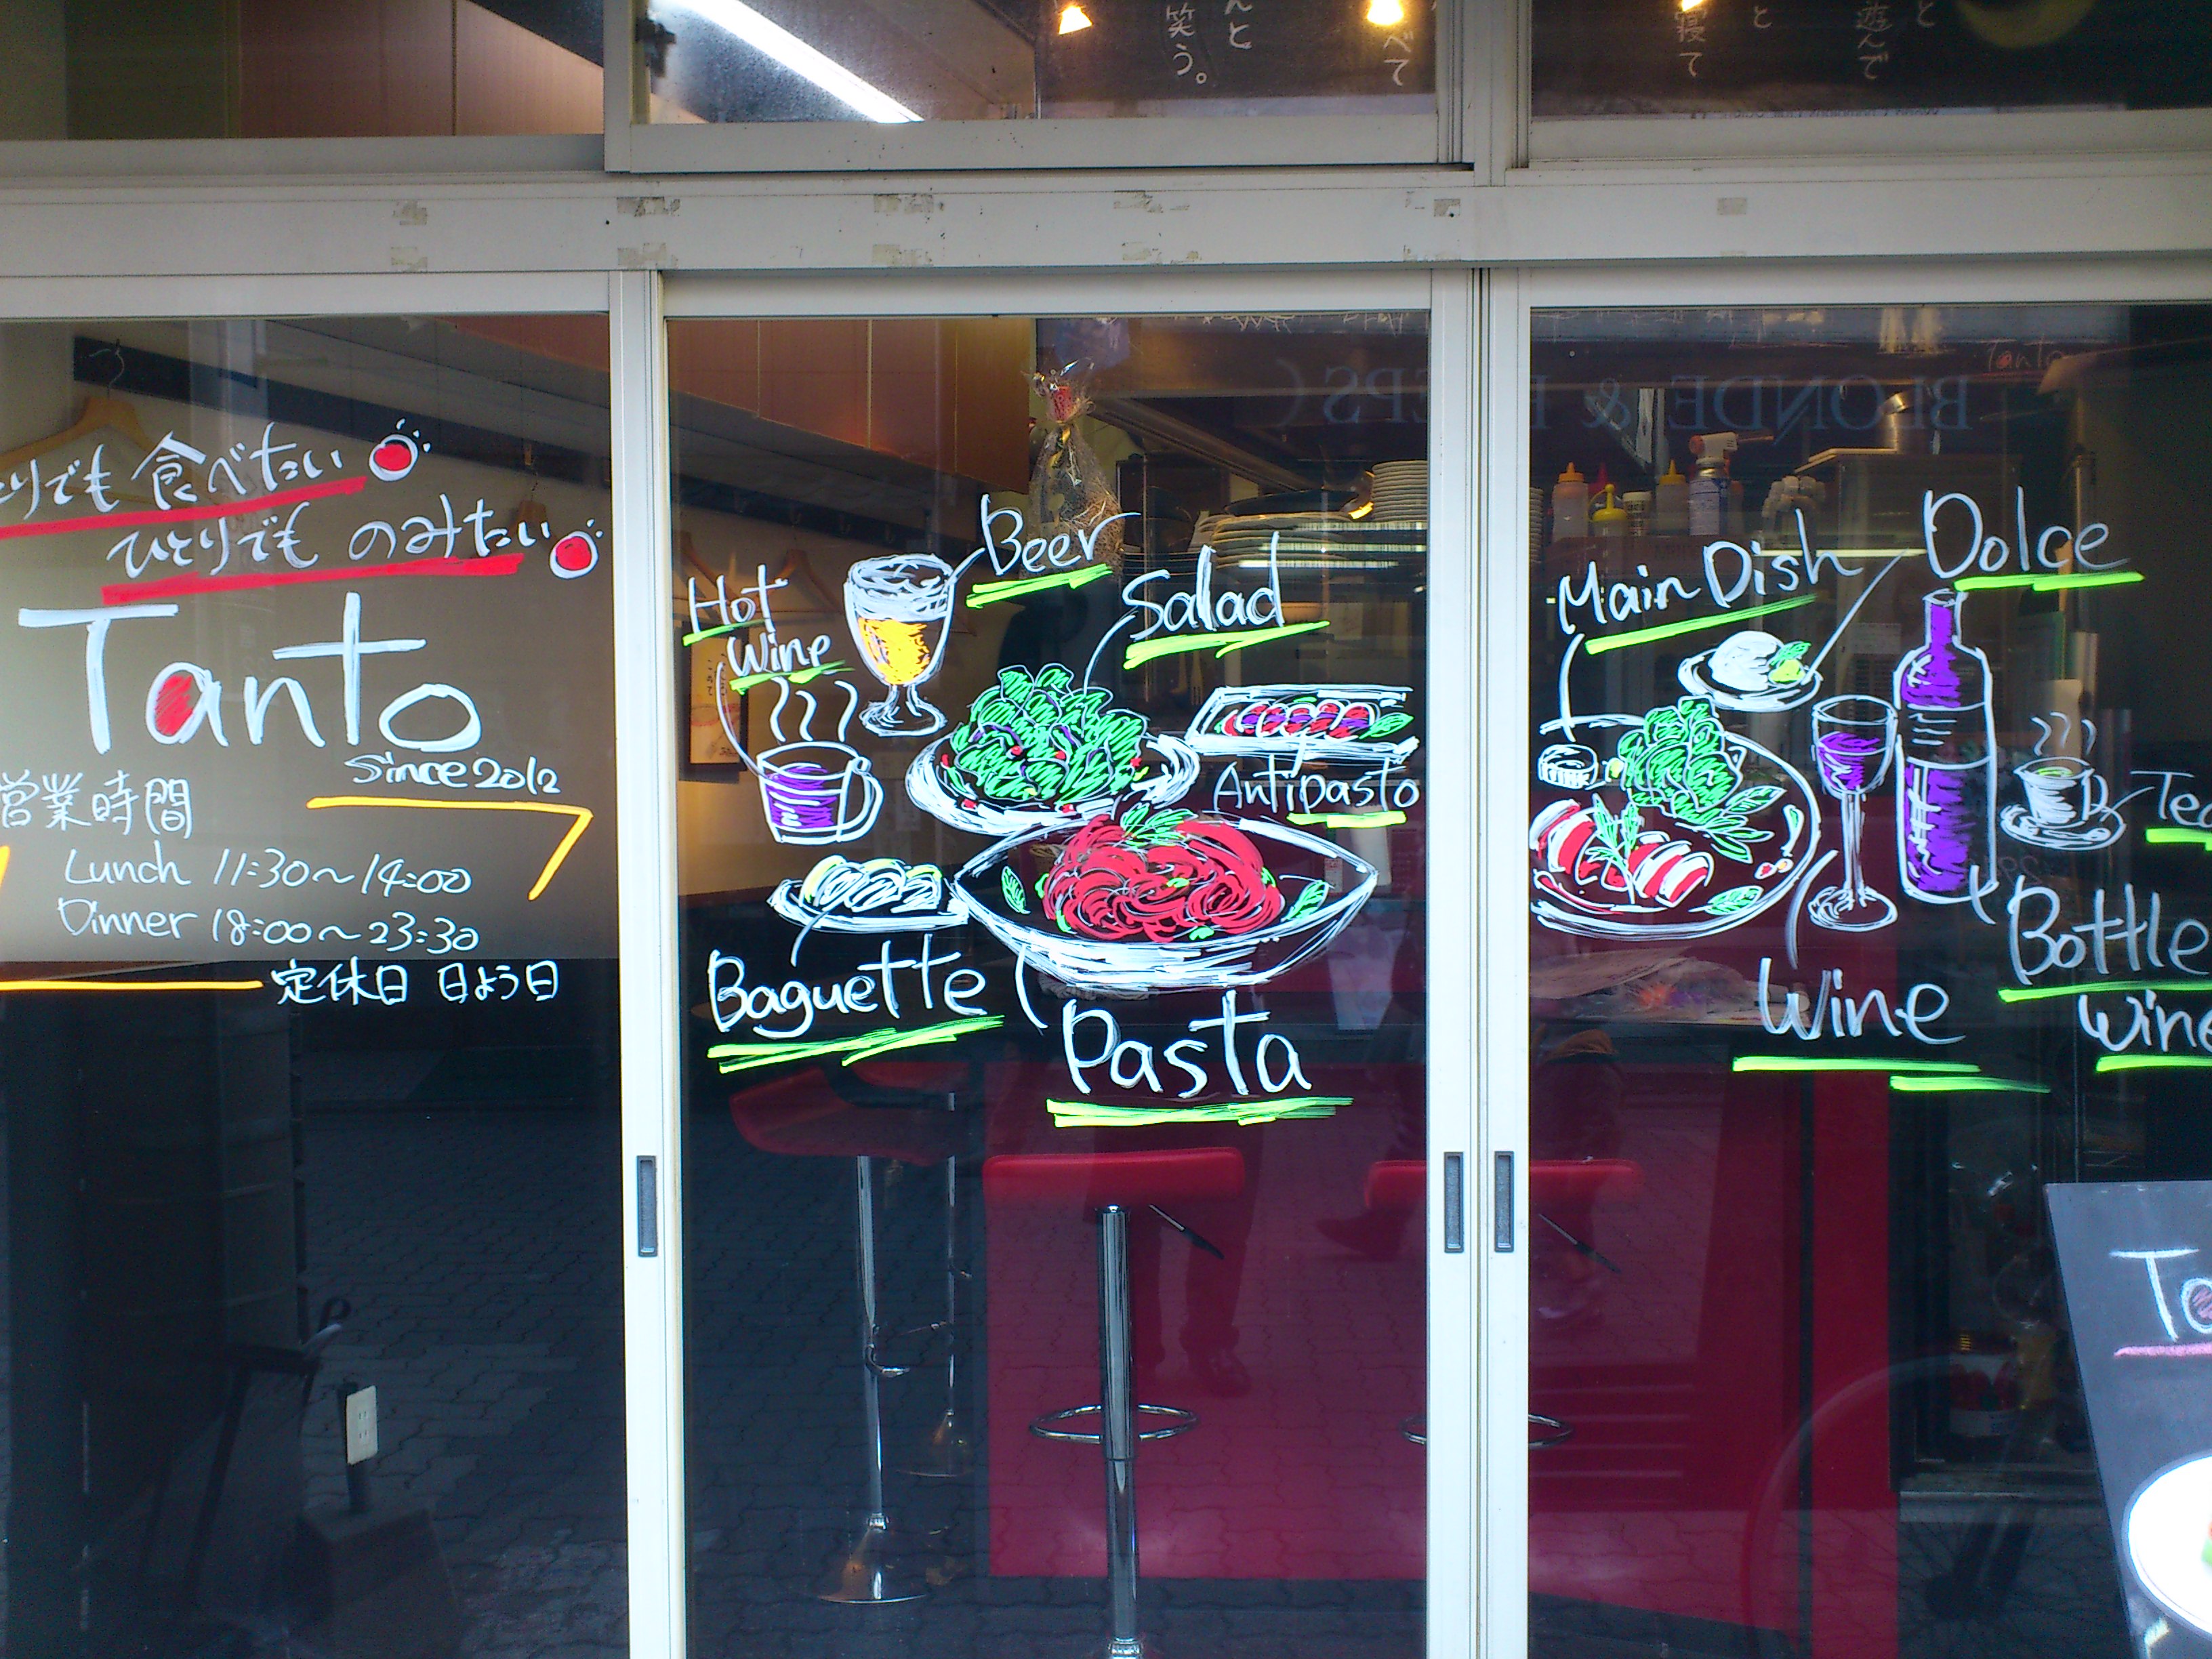 んと
笑う。
べて
寝て
と
遊んで
と
とりでも 食べたい
ひとりでも のみたい
Tanto
Since 2012
営業時間
Lunch 11:30~14:00
Dinner 18:00~23:30
定休日 日よう日
Beer
Hot
Wine
Salad
Antipasto
Baguette
Pasta
Main Dish
Dolce
Tea
Wine
Bottle
Wine
BLONDE &
Tanto